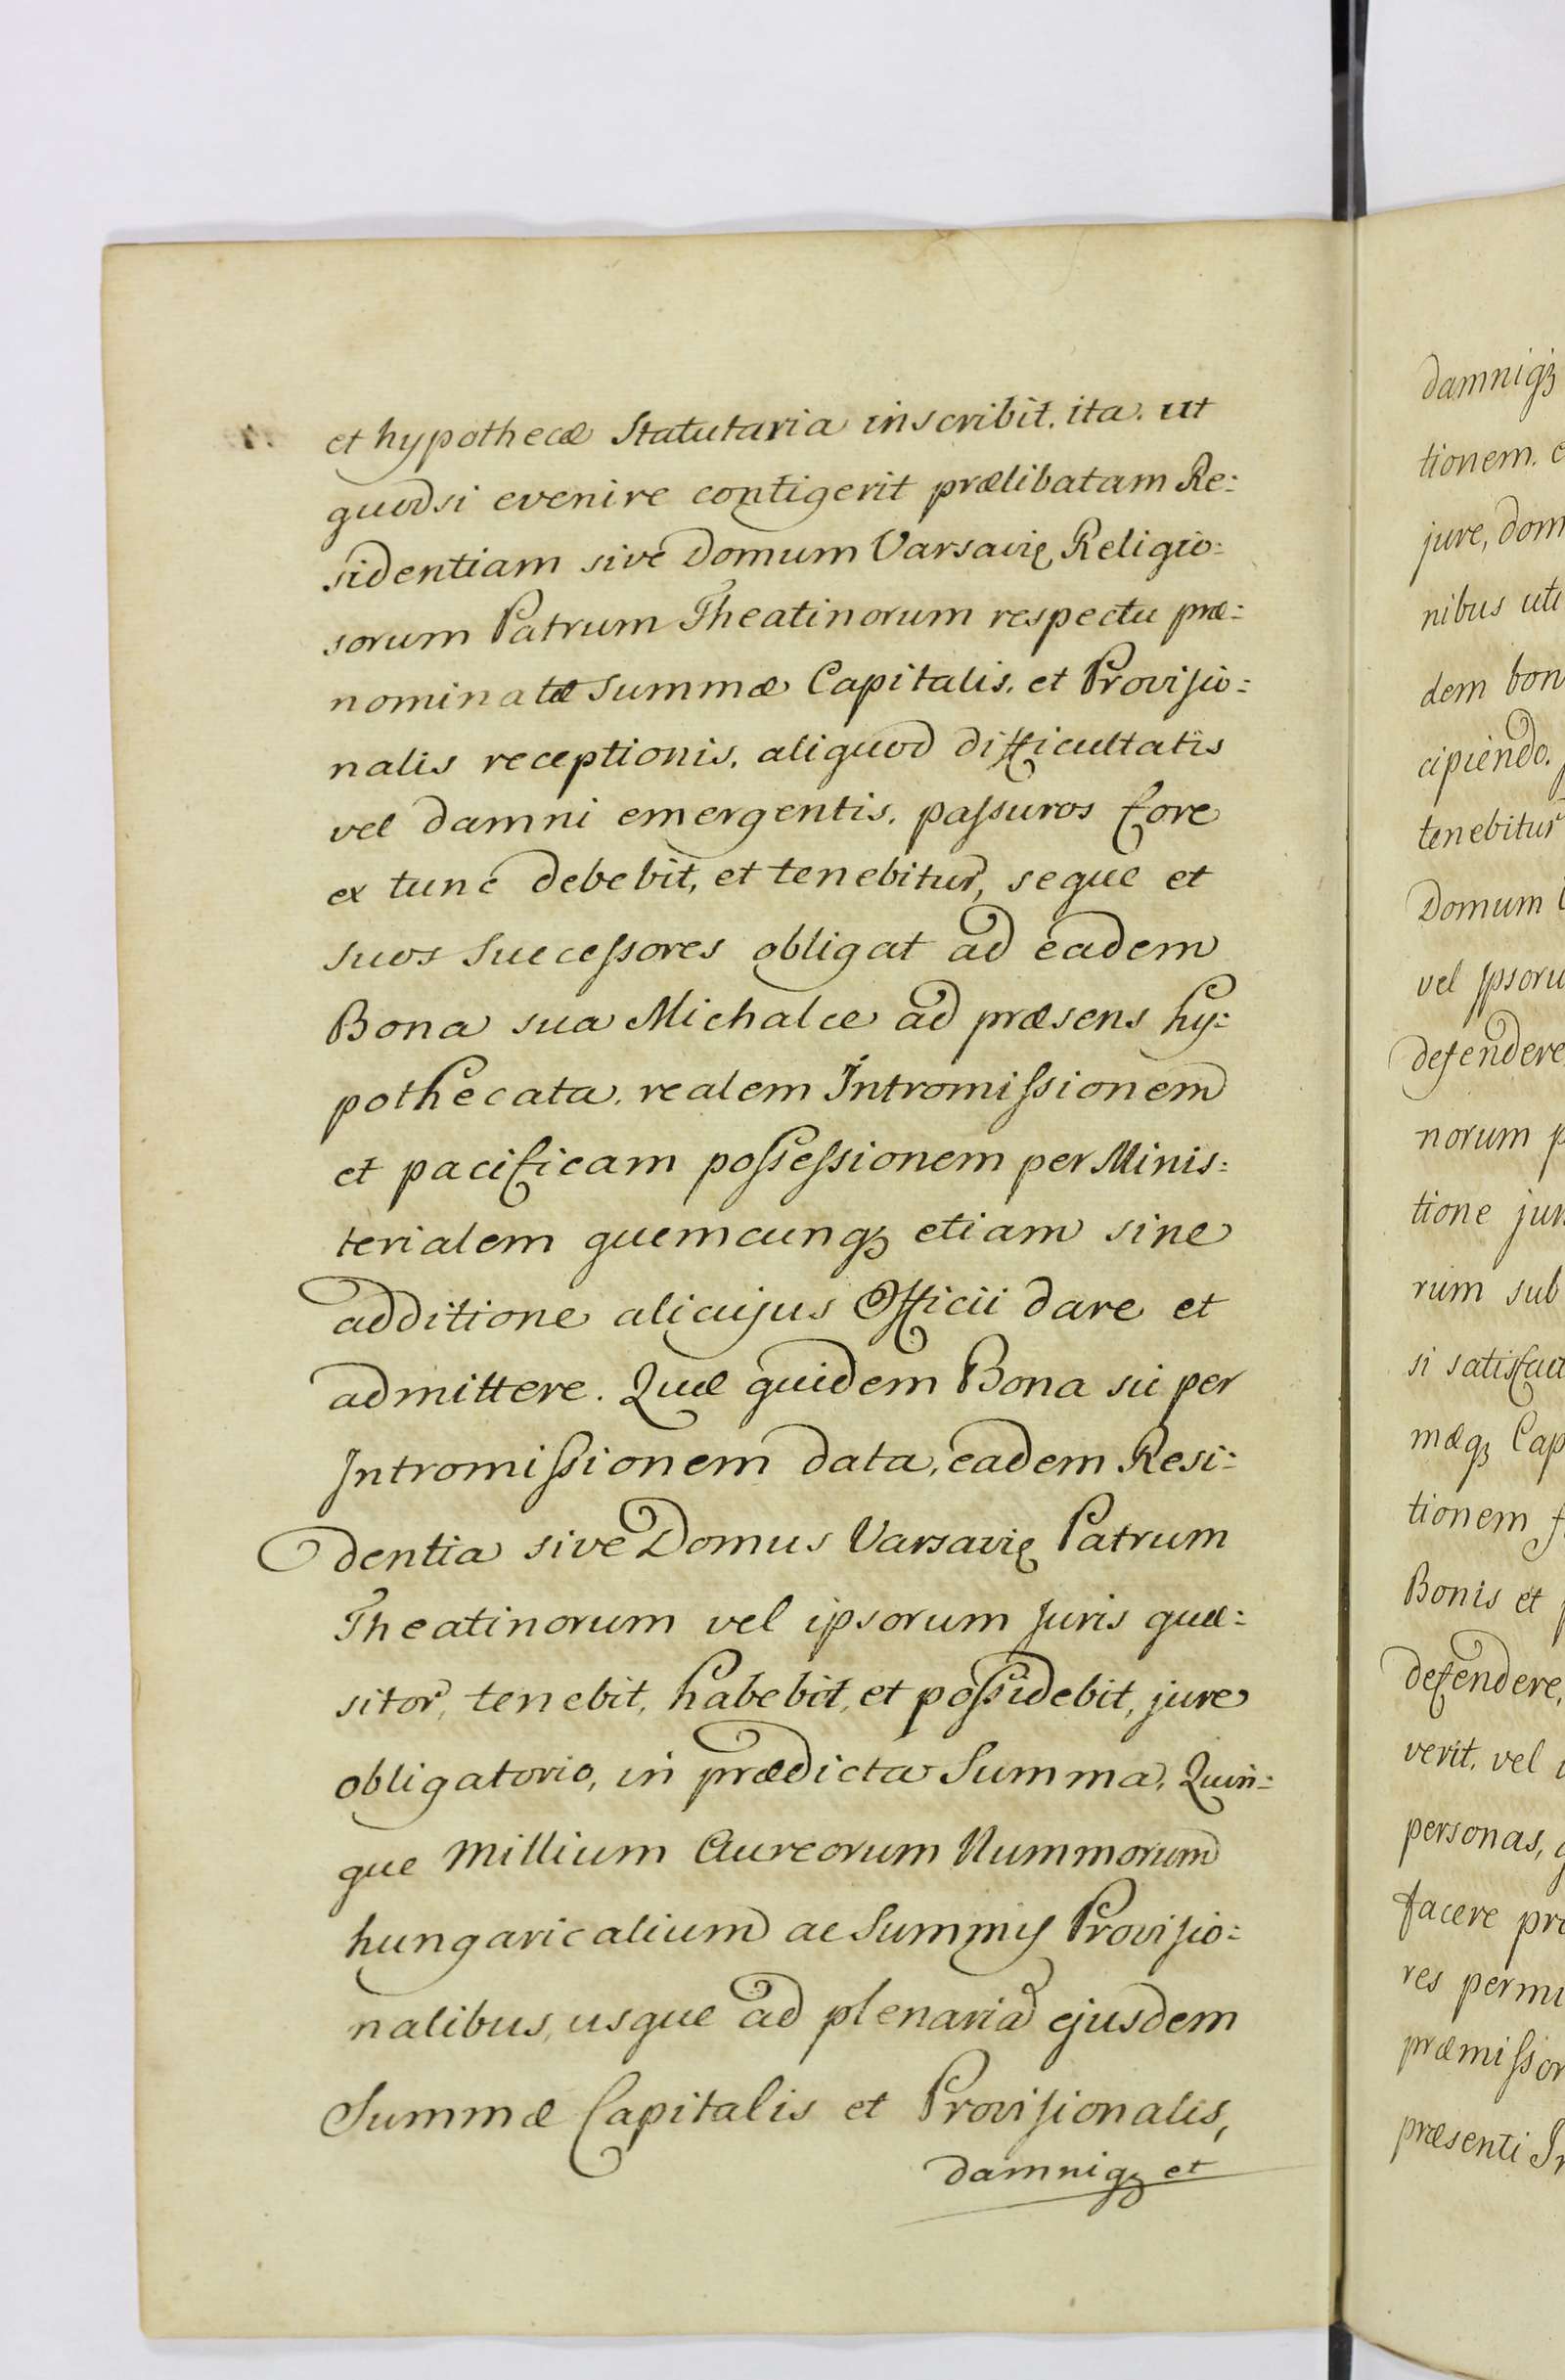 et hypothecæ Statutaria inscribit. ita. ut
quodsi evenire contigerit prælibatam Re:
sidentiam sive Domum Varsavię Religio:
sorum Patrum Theatinorum respectu præ:
nominatæ Summæ Capitalis. et Provisio:
nalis receptionis. aliquod difficultatis
vel damni emergentis. passuros fore
ex tunc debebit, et tenebitur, seque et
suos Successores obligat ad eadem
Bona sua Michalce ad præsens hy:
pothecata. realem Intromissionem
et pacificam possessionem per Minis:
terialem quemcunqȝ etiam sine
additione alicujus Officii dare et
admittere. Quæ quidem Bona sic per
Intromissionem data, eadem Resi:
dentia sive Domus Varsavię Patrum
Theatinorum vel ipsorum Juris quæ:
sitor, tenebit, habebit, et possidebit, jure
obligatorio, in prædicta Summa, Quin:
que Millium Aureorum Nummorum
hungaricalium ac Summis Provisio:
nalibus, usque ad plenariã ejusdem
Summæ Capitalis et Provisionalis,
damniqȝ et
damniqȝ
tionem. e
jure, dom
nibus uti
dem bon
cipiendo.
tenebitur
Domum
vel Ipsoru
defendere
norum p
tione jur
rum sub
si satisfact
mæqȝ Cap
tionem f
Bonis et
defendere,
verit, vel
personas,
facere pro
res permi
præmissor
præsenti In